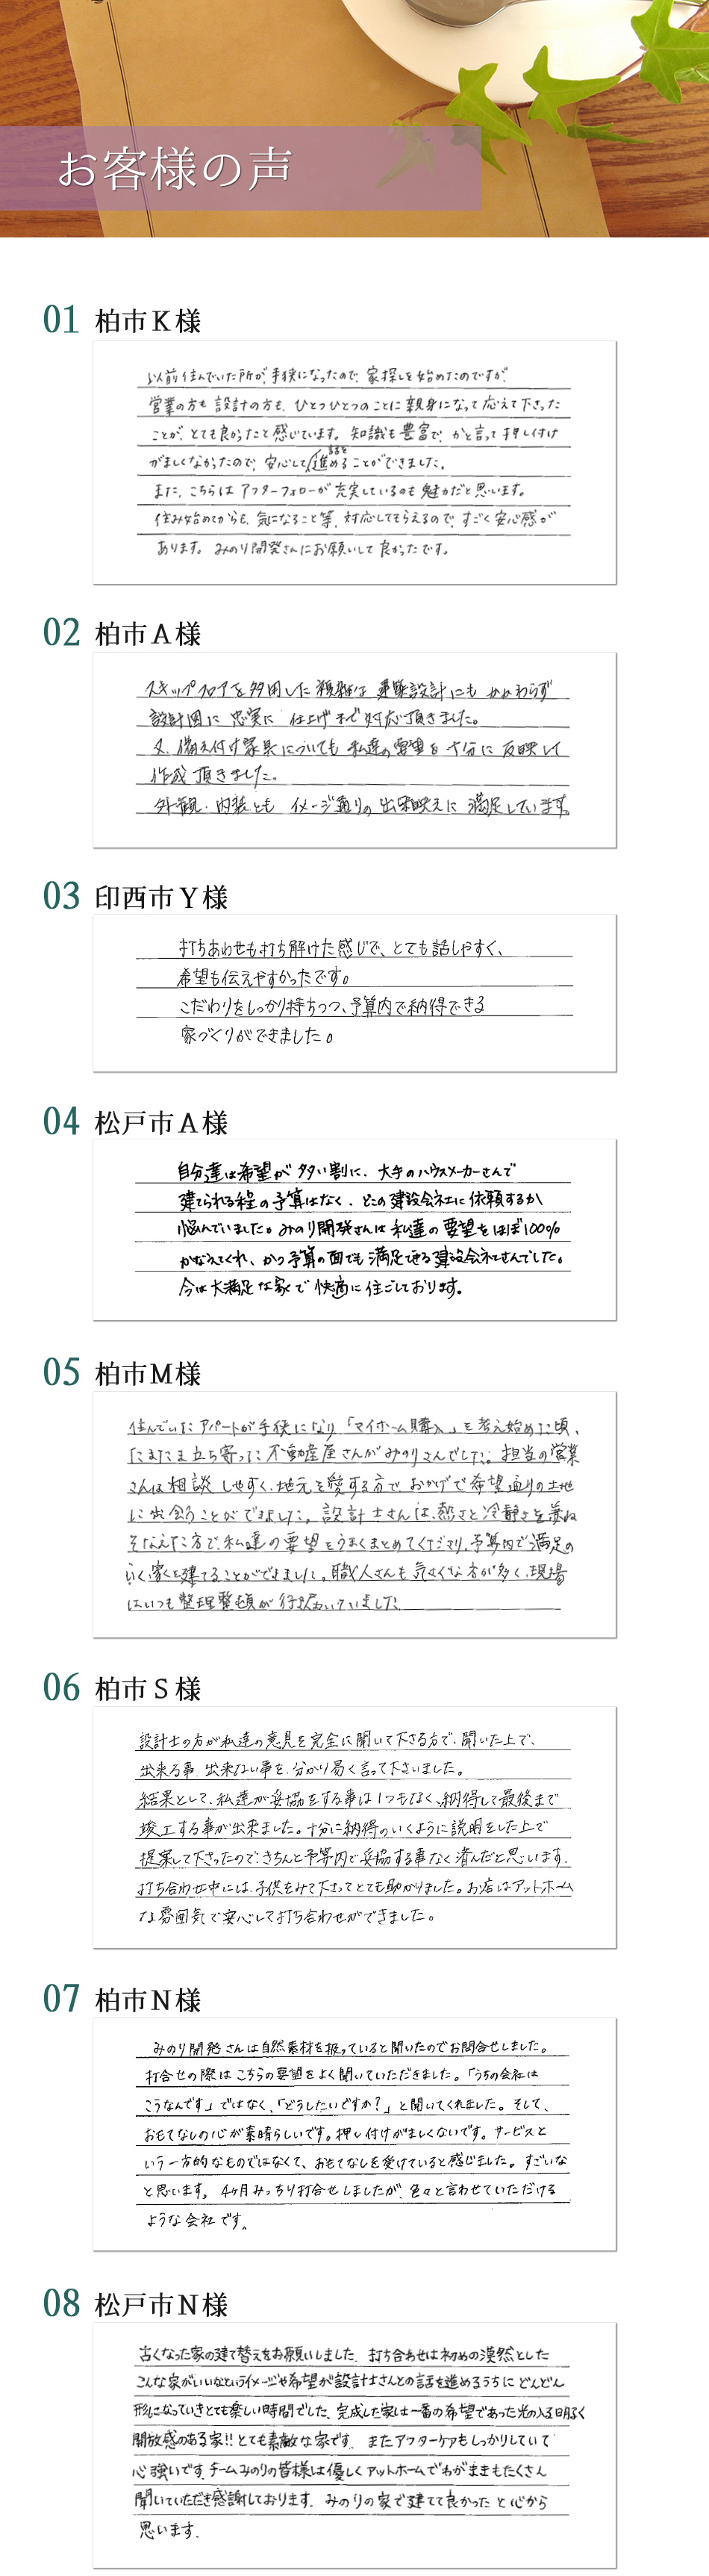 お客様の声
01 柏市K様
以前住んでいた所が、手狭になったので、家探しを始めたのですが、
営業の方も設計の方も、ひとつひとつのことに親身になって応えて下さった
ことが、とても良かったと感じています。知識も豊富で、かと言って押し付け
がましくなかったので、安心して話を進めることができました。
また、こちらはアフターフォローが充実しているのも魅力だと思います。
住み始めてからも、気になること等、対応してもらえるので、すごく安心感が
あります。みのり開発さんにお願いして良かったです。
02 柏市A様
スキップフロアを多用した複雑な建築設計にもかかわらず
設計図に忠実に仕上げまで対応頂きました。
又、備え付け家具についても私達の要望を十分に反映して
作成頂きました。
外観・内装とも イメージ通りの出来映えに満足しています。
03 印西市Y様
打ちあわせも打ち解けた感じで、とても話しやすく、
希望も伝えやすかったです。
こだわりをしっかり持ちつつ、予算内で納得できる
家づくりができました。
04 松戸市A様
自分達は希望が多い割に、大手のハウスメーカーさんで
建てられる程の予算はなく、どこの建設会社に依頼するか
悩んでいました。みのり開発さんは私達の要望をほぼ100%
かなえてくれ、かつ予算の面でも満足できる建設会社さんでした。
今は大満足な家で快適に住ごしております。
05 柏市M様
住んでいたアパートが手狭になり「マイホーム購入」を考え始めた頃、
たまたま立ち寄った不動産屋さんがみのりさんでした。担当の営業
さんは相談しやすく、地元を愛する方で、おかげで希望通りの土地
に出会うことができました。設計士さんは、熱さと冷静さを兼ね
そなえた方で、私達の要望をうまくまとめてくださり、予算内で満足の
いく家を建てることができました。職人さんも気さくな方が多く、現場
はいつも整理整頓が行き届いていました
06 柏市S様
設計士の方が私達の意見を完全に聞いて下さる方で、聞いた上で、
出来る事、出来ない事を、分かり易く言って下さいました。
結果として、私達が妥協をする事は1つもなく、納得して最後まで
竣工する事が出来ました。十分に納得のいくように説明をした上で
提案して下さったので、きちんと予算内で妥協する事なく済んだと思います。
打ち合わせ中には、子供をみて下さってとても助かりました。お店はアットホーム
な雰囲気で安心して打ち合わせができました。
07 柏市N様
みのり開発さんは自然素材を扱っていると聞いたのでお問合せしました。
打合せの際はこちらの要望をよく聞いていただきました。「うちの会社は
こうなんです」ではなく、「どうしたいですか?」と聞いてくれました。そして、
おもてなしの心が素晴らしいです。押し付けがましくないです。サービスと
いう一方的なものではなくて、おもてなしを受けていると感じました。すごいな
と思います。4ヶ月みっちり打合せしましたが、色々と言わせていただける
ような会社です。
08 松戸市N様
古くなった家の建て替えをお願いしました。打ち合わせは初めの漠然とした
こんな家がいいなというイメージや希望が設計士さんとの話を進めるうちにどんどん
形になっていきとても楽しい時間でした、完成した家は一番の希望であった光の入る明るく
開放感のある家!!とても素敵な家です。またアフターケアもしっかりしていて
心強いです。チームみのりの皆様は優しくアットホームでわがままもたくさん
聞いていただき感謝しております。みのりの家で建てて良かったと心から
思います。